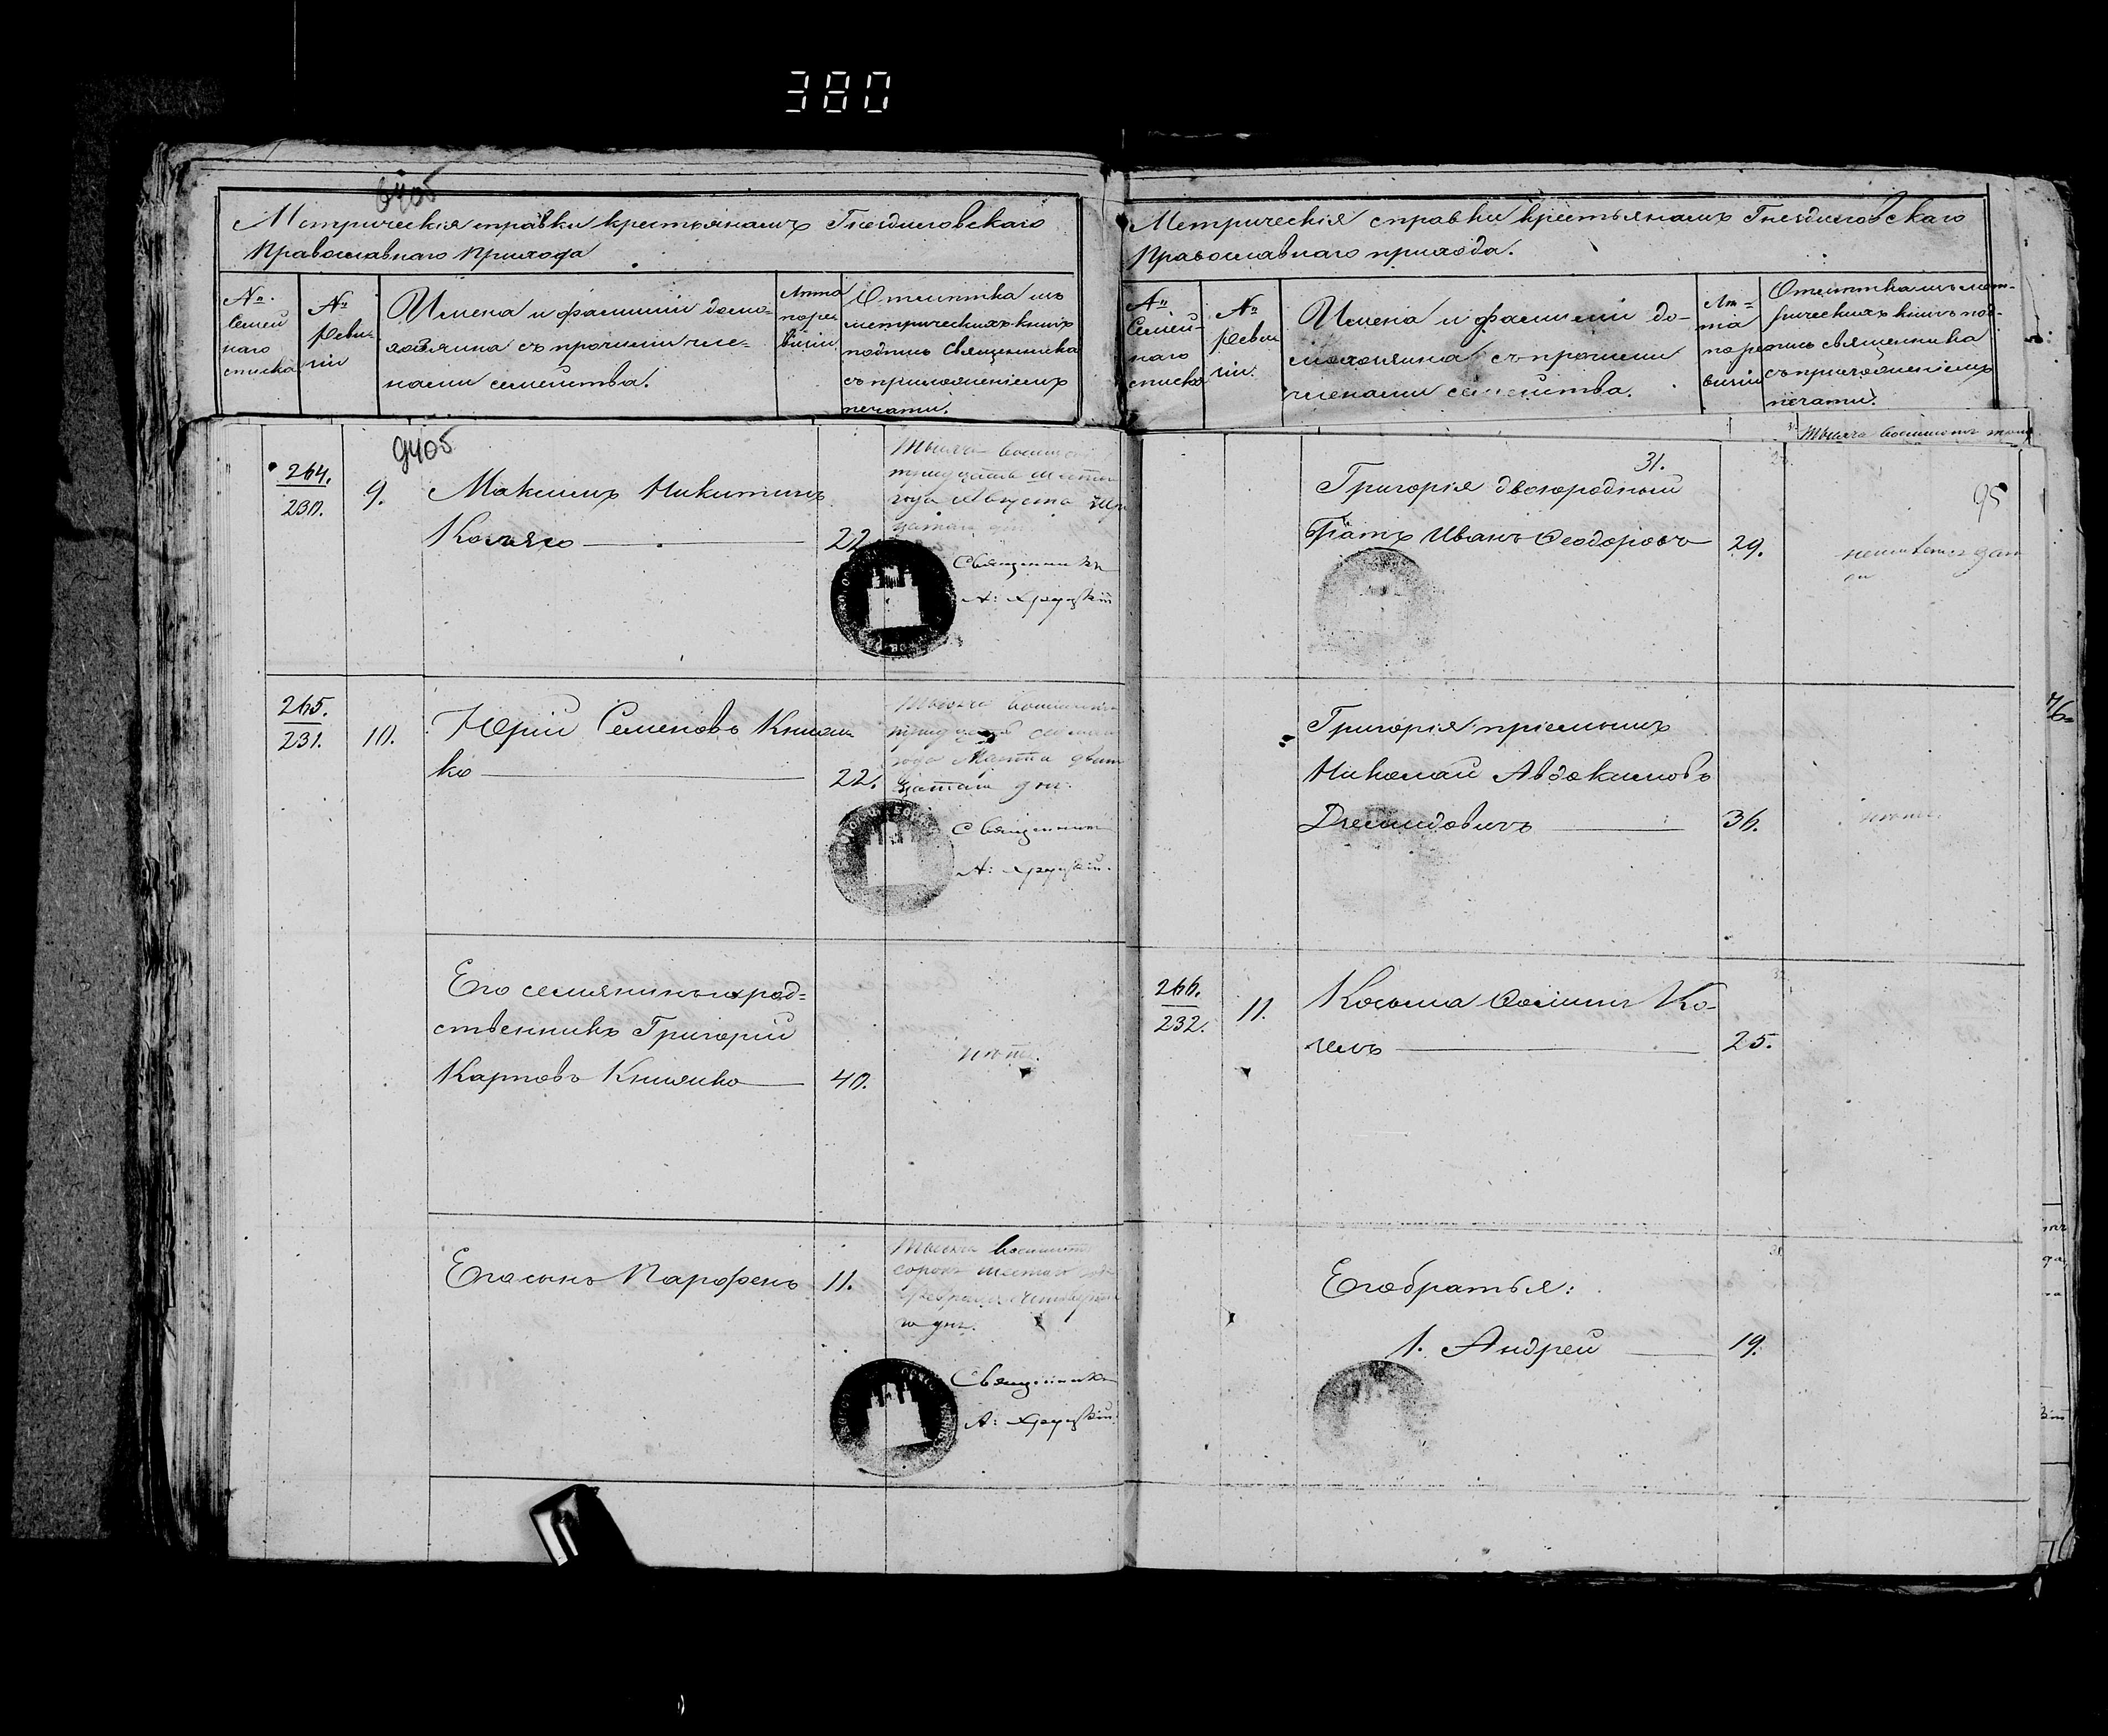 380
6405
Метрическія справки крестьянамъ Гнездиловскаго
Православнаго прихода
№
Семей
наго
списка
№
Реви-
зіи
Имена и фамиліи домо-
хозяина съ прочими чле-
нами семейства.
Лѣта
по ре
визіи
Отмѣтка изъ
метрическихъ книгъ
подпись Священника
съ приложеніемъ
печати.
9405
264.
230.
9.
Максимъ Никитинъ
22
Тысяча восемсот
тридцать шестаго
года Августа
Священникъ
А: Хруцкій
265.
231.
10.
Юрій Семеновъ Книж
ко
22.
Тысяча восемсот
тридцать
года Марта двад
цатаго дня.
Священникъ
А: Хруцкій.
Его семянинъ и род=
ственникъ Григорій
Карповъ
40.
нѣтъ.
Его сынъ Парфенъ
11.
Тысяча восемсотъ
сорокъ шестаго
Февраля четверта
го дня.
Священникъ
А: Хруцкій.
Метрическія справки крестьянамъ Гнездиловскаго
Православнаго прихода.
№
Семей-
наго
списка
№
Реви
зіи.
Имена и фамиліи до-
мохозяина съ прочими
членами семейства.
Лѣ=
та
по ре
визіи
Отмѣтка изъ мет-
рическихъ книгъ под-
пись священника
съ приложеніемъ
печати.
Тысяча восемсотъ
31.
95
Григорія двоюродный
братъ Иванъ Феодоровъ
29.
Григорія пріемышъ
Николай Авдакимовъ
Демидовичъ
36.
нѣтъ.
266.
232.
11.
Козьма Ко-
25.
Его братья:
1. Андрей
19.